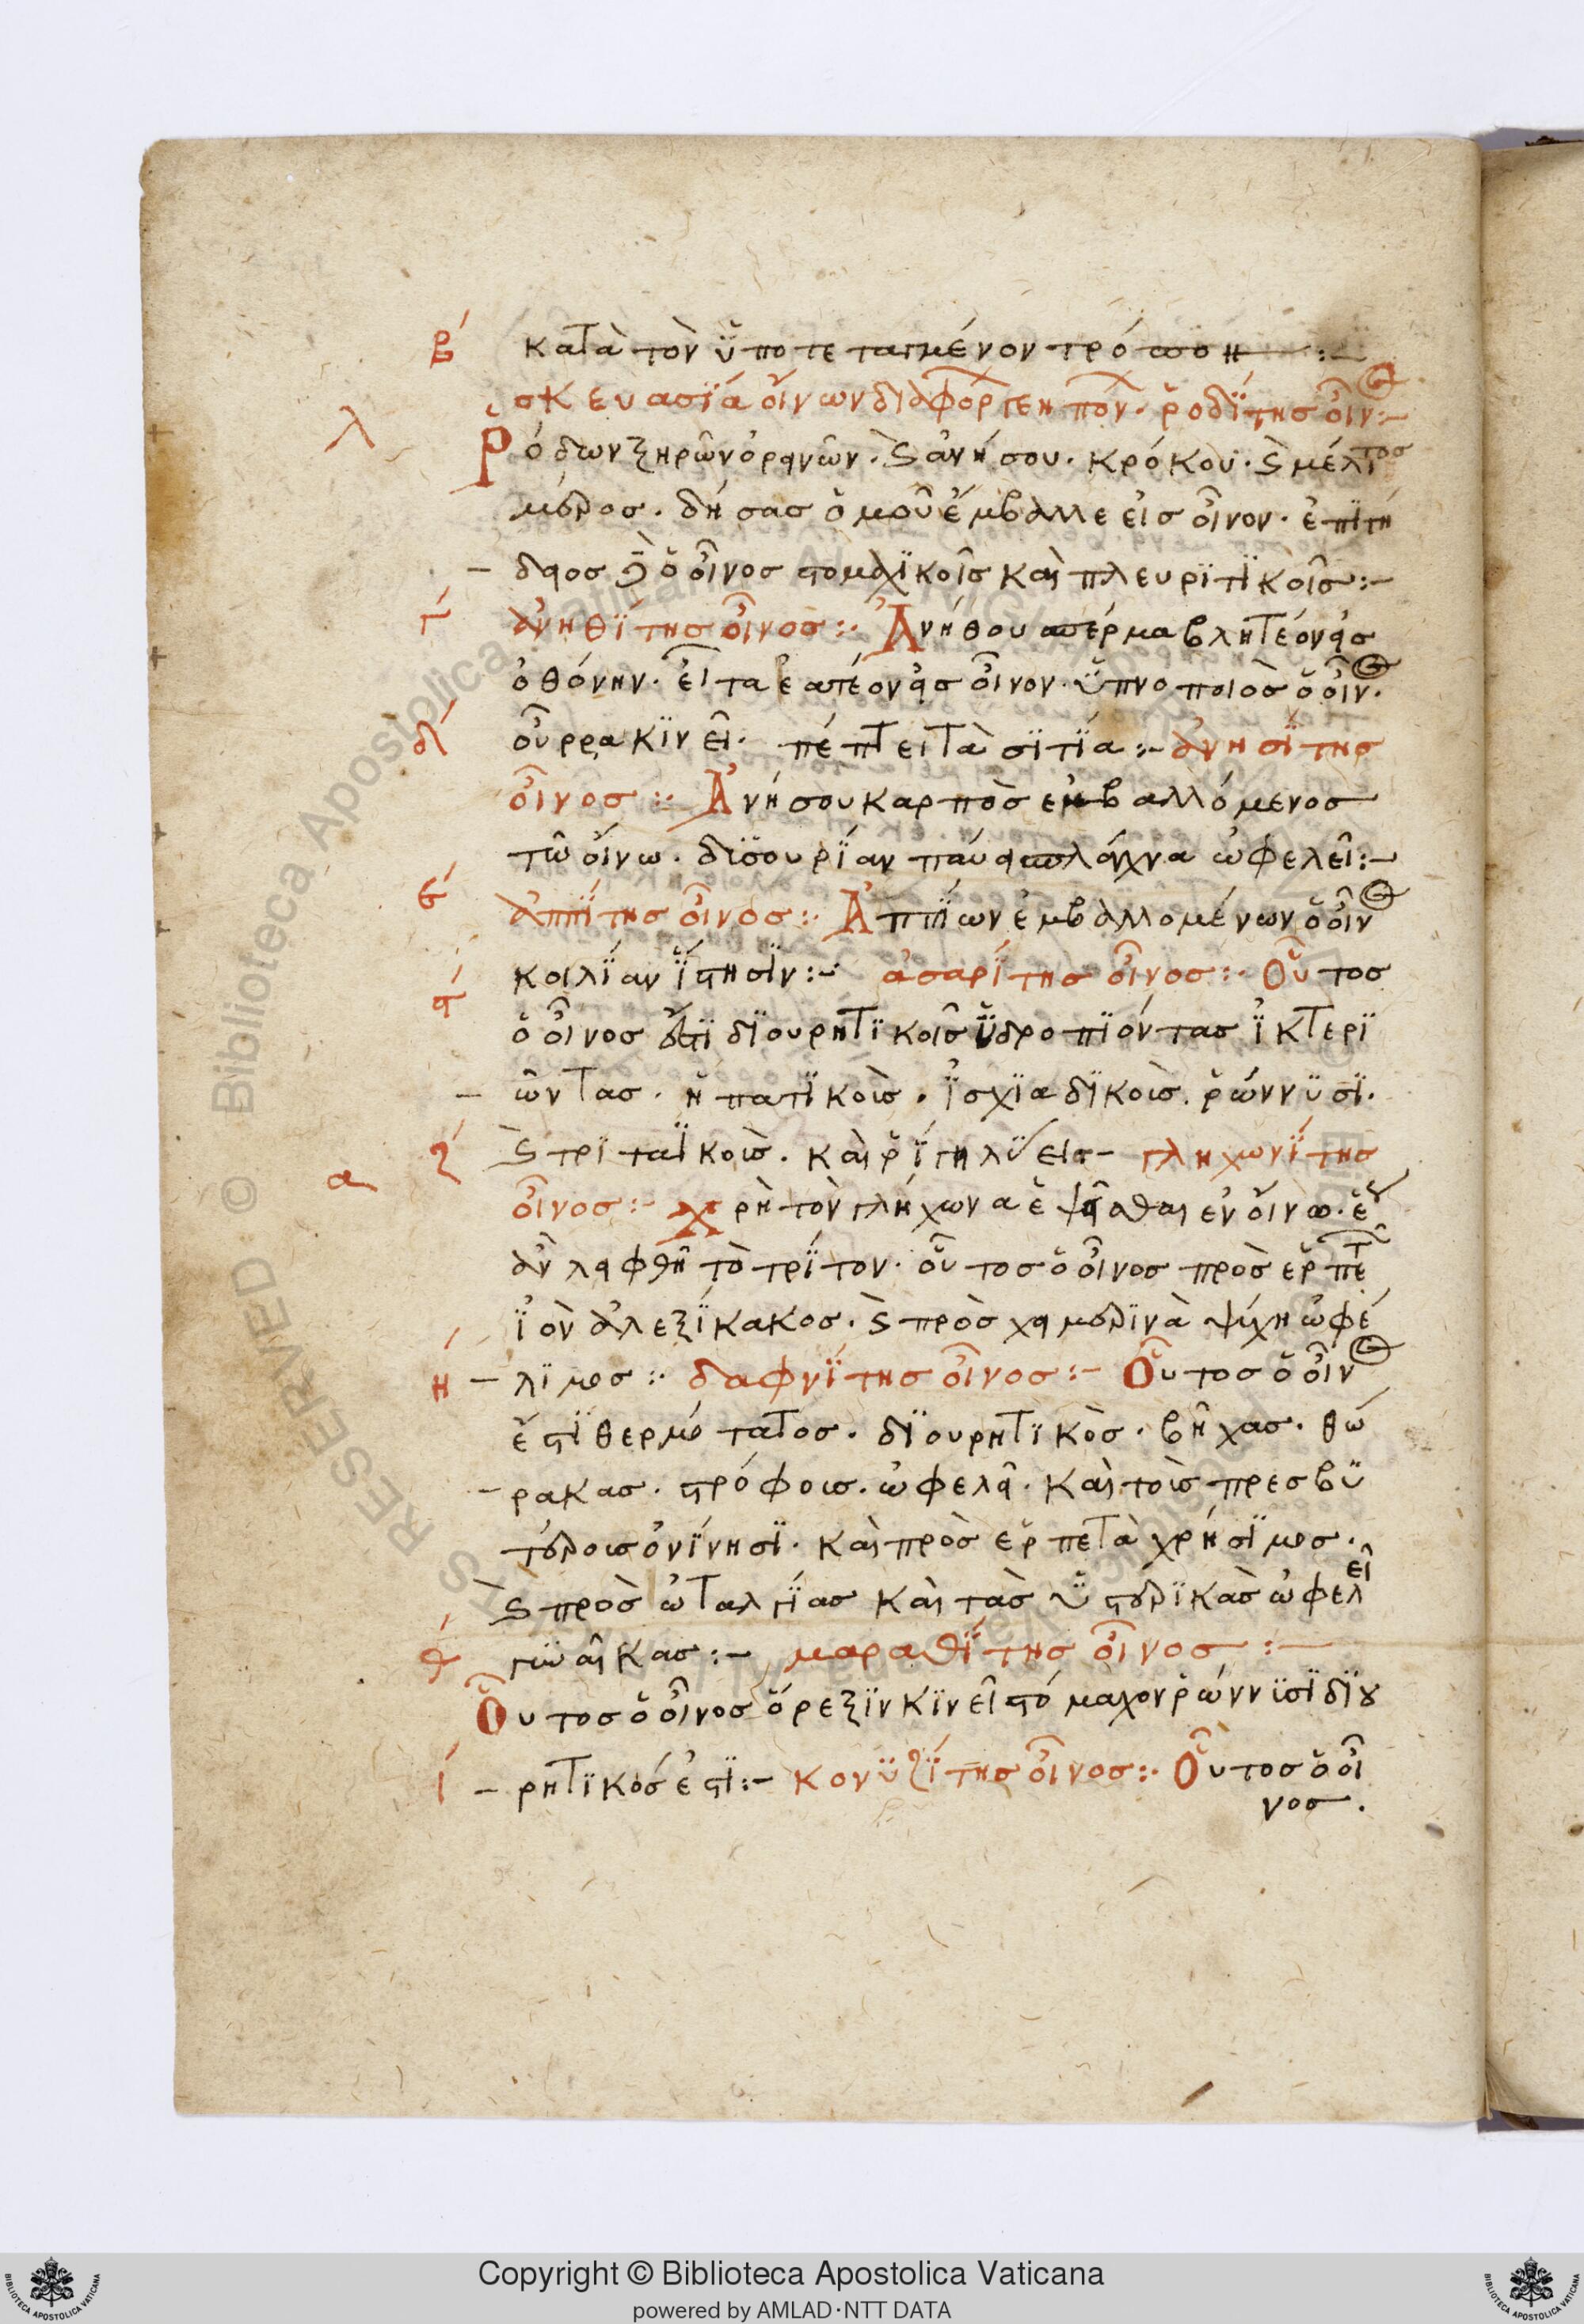 β´ κατὰ τὸν ὑποτεταγμένον τρόπον :-
σκευασΐα οἴνων διαφόρ γεηπον· ῥοδΐτης οἶν :-
λ Ῥόδων ξηρῶν ὀρεινῶν· ϛ ἀνήσου· κρόκου· ϛ μέλιτος
μέρος· δήσας ὁμοῦ ἔμβαλλε εἰς οἶνον· ἐπϊτή
δειος δὲ ὁ οἶνος στομαχϊκοῖς καὶ πλευρϊτϊκοῖς :-
γ´ ἀνηθΐτης οἶνος :· Ἀνήθου σπέρμα βλητέον εἰς
ὀθόνην· εἶτα ἑατέον εἰς οἶνον· ὑπνοποιὸς ὁ οἶν·
δ´ οὖρρα κϊνεῖ· πέπτει τὰ σϊτΐα :- ἀνησΐτης
οἶνος :· Ἀνήσου καρπὸς ἐμβαλλόμενος
τῶ οἴνω· δϊσουρΐαν παύει σπλάγχνα ὠφελεῖ :-
ε´ ἀππΐτης οἶνος :· Ἀππΐων ἐμβαλλομένων ὁ οἶν
ϛ´ κοιλΐαν ΐστησϊν :· ἀσαρΐτης οἶνος :· Οὗτος
ὁ οἶνος ἐστϊ δϊουρητϊκοῖς ὑδροπϊόντας ἰκτερϊ
ῶντας· ἡπατϊκοῖς· ἰσχϊαδϊκοῖς· ῥώννϋσϊ·
ζ´ ϛ τρϊταϊκοῖς· καὶ ῥΐγη λύει :- γληχωνΐτης
α οἶνος :- χρὴ τὸν γλήχωνα ἑψεῖσθαι ἐν οἴνω· ἕως
ἂν λειφθῆ τὸ τρΐτον· οὗτος ὁ οἶνος πρὸς ἑρπετῶν
ἰὸν ἀλεξΐκακος· ϛ πρὸς χειμερϊνὰ ψύχη ὠφέ
η´ λϊμος :· δαφνΐτης οἶνος :- Οὗτος ὁ οἶν
ἐστϊ θερμότατος· δϊουρητϊκὸς· βῆχας· θώ
ρακας· στρόφοις· ὠφελεῖ· καὶ τοῖς πρεσβϋ
τέροις ὀνΐνησϊ· καὶ πρὸς ἑρπετὰ χρήσϊμος·
ϛ πρὸς ὠταλγΐας καὶ τὰς ὑστερϊκὰς ὠφελεῖ
θ´ γϋναῖκας :- μαραθΐτης οἶνος :-
Οὗτος ὁ οἶνος ὄρεξϊν κϊνεῖ στόμαχον ῥώννϋσϊ δϊου
ι´ ρητϊκός ἐστϊ :- κονϋζΐτης οἶνος :· Οὗτος ὁ οἶ
νος·
Biblioteca Apostolica Vaticana
Copyright © Biblioteca Apostolica Vaticana
powered by AMLAD·NTT DATA